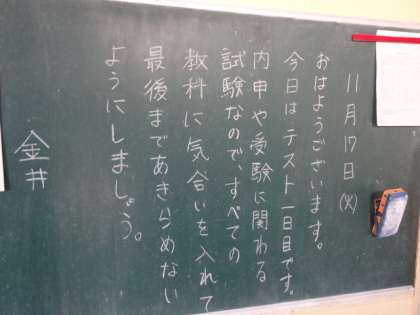 11月17日(火)
おはようございます。
今日はテスト一日目です。
内申や受験に関わる
試験なので、すべての
教科に気合いを入れて
最後まであきらめない
ようにしましょう。
金井